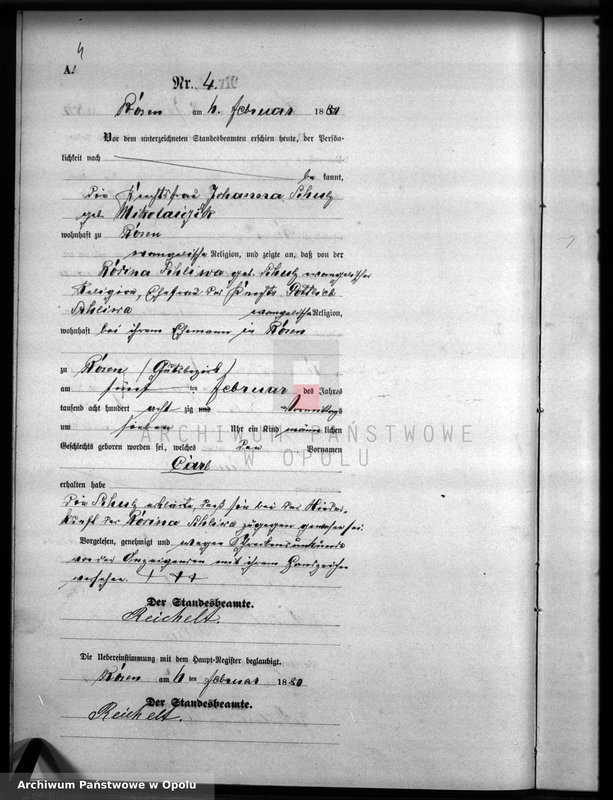 4
A.
Nr. 4.
Rosen am 6. Februar 1880
Vor dem unterzeichneten Standesbeamten erschien heute, der Persön-
lichkeit nach
be kannt,
die Knechtsfrau Johanna Schulz
geb. Mikolaiczik
wohnhaft zu Rosen
evangelische Religion, und zeigte an, daß von der
Rosina Schliwa geb. Schulz evangelischer
Religion, Ehefrau des Knechts Gottlieb
Schliwa evangelische Religion,
wohnhaft bei ihrem Ehemann in Rosen
zu Rosen (Gutsbezirk)
am fünf ten Februar des Jahres
tausend acht hundert acht zig und Vormittags
um sieben Uhr ein Kind männ lichen
Geschlechts geboren worden sei, welches den Vornamen
Carl
erhalten habe
Die Schulz erklärte, daß sie bei der Nieder-
kunft der Rosina Schliwa zugegen gewesen sei.
Vorgelesen, genehmigt und wegen Schreibensunkunde
von der Anzeigenden mit ihrem Handzeichen
versehen. + + +
Der Standesbeamte.
Reichelt.
Die Uebereinstimmung mit dem Haupt-Register beglaubigt.
Rosen am 6 ten Februar 1880
Der Standesbeamte.
Reichelt.
ARCHIWUM PAŃSTWOWE
W OPOLU
Archiwum Państwowe w Opolu